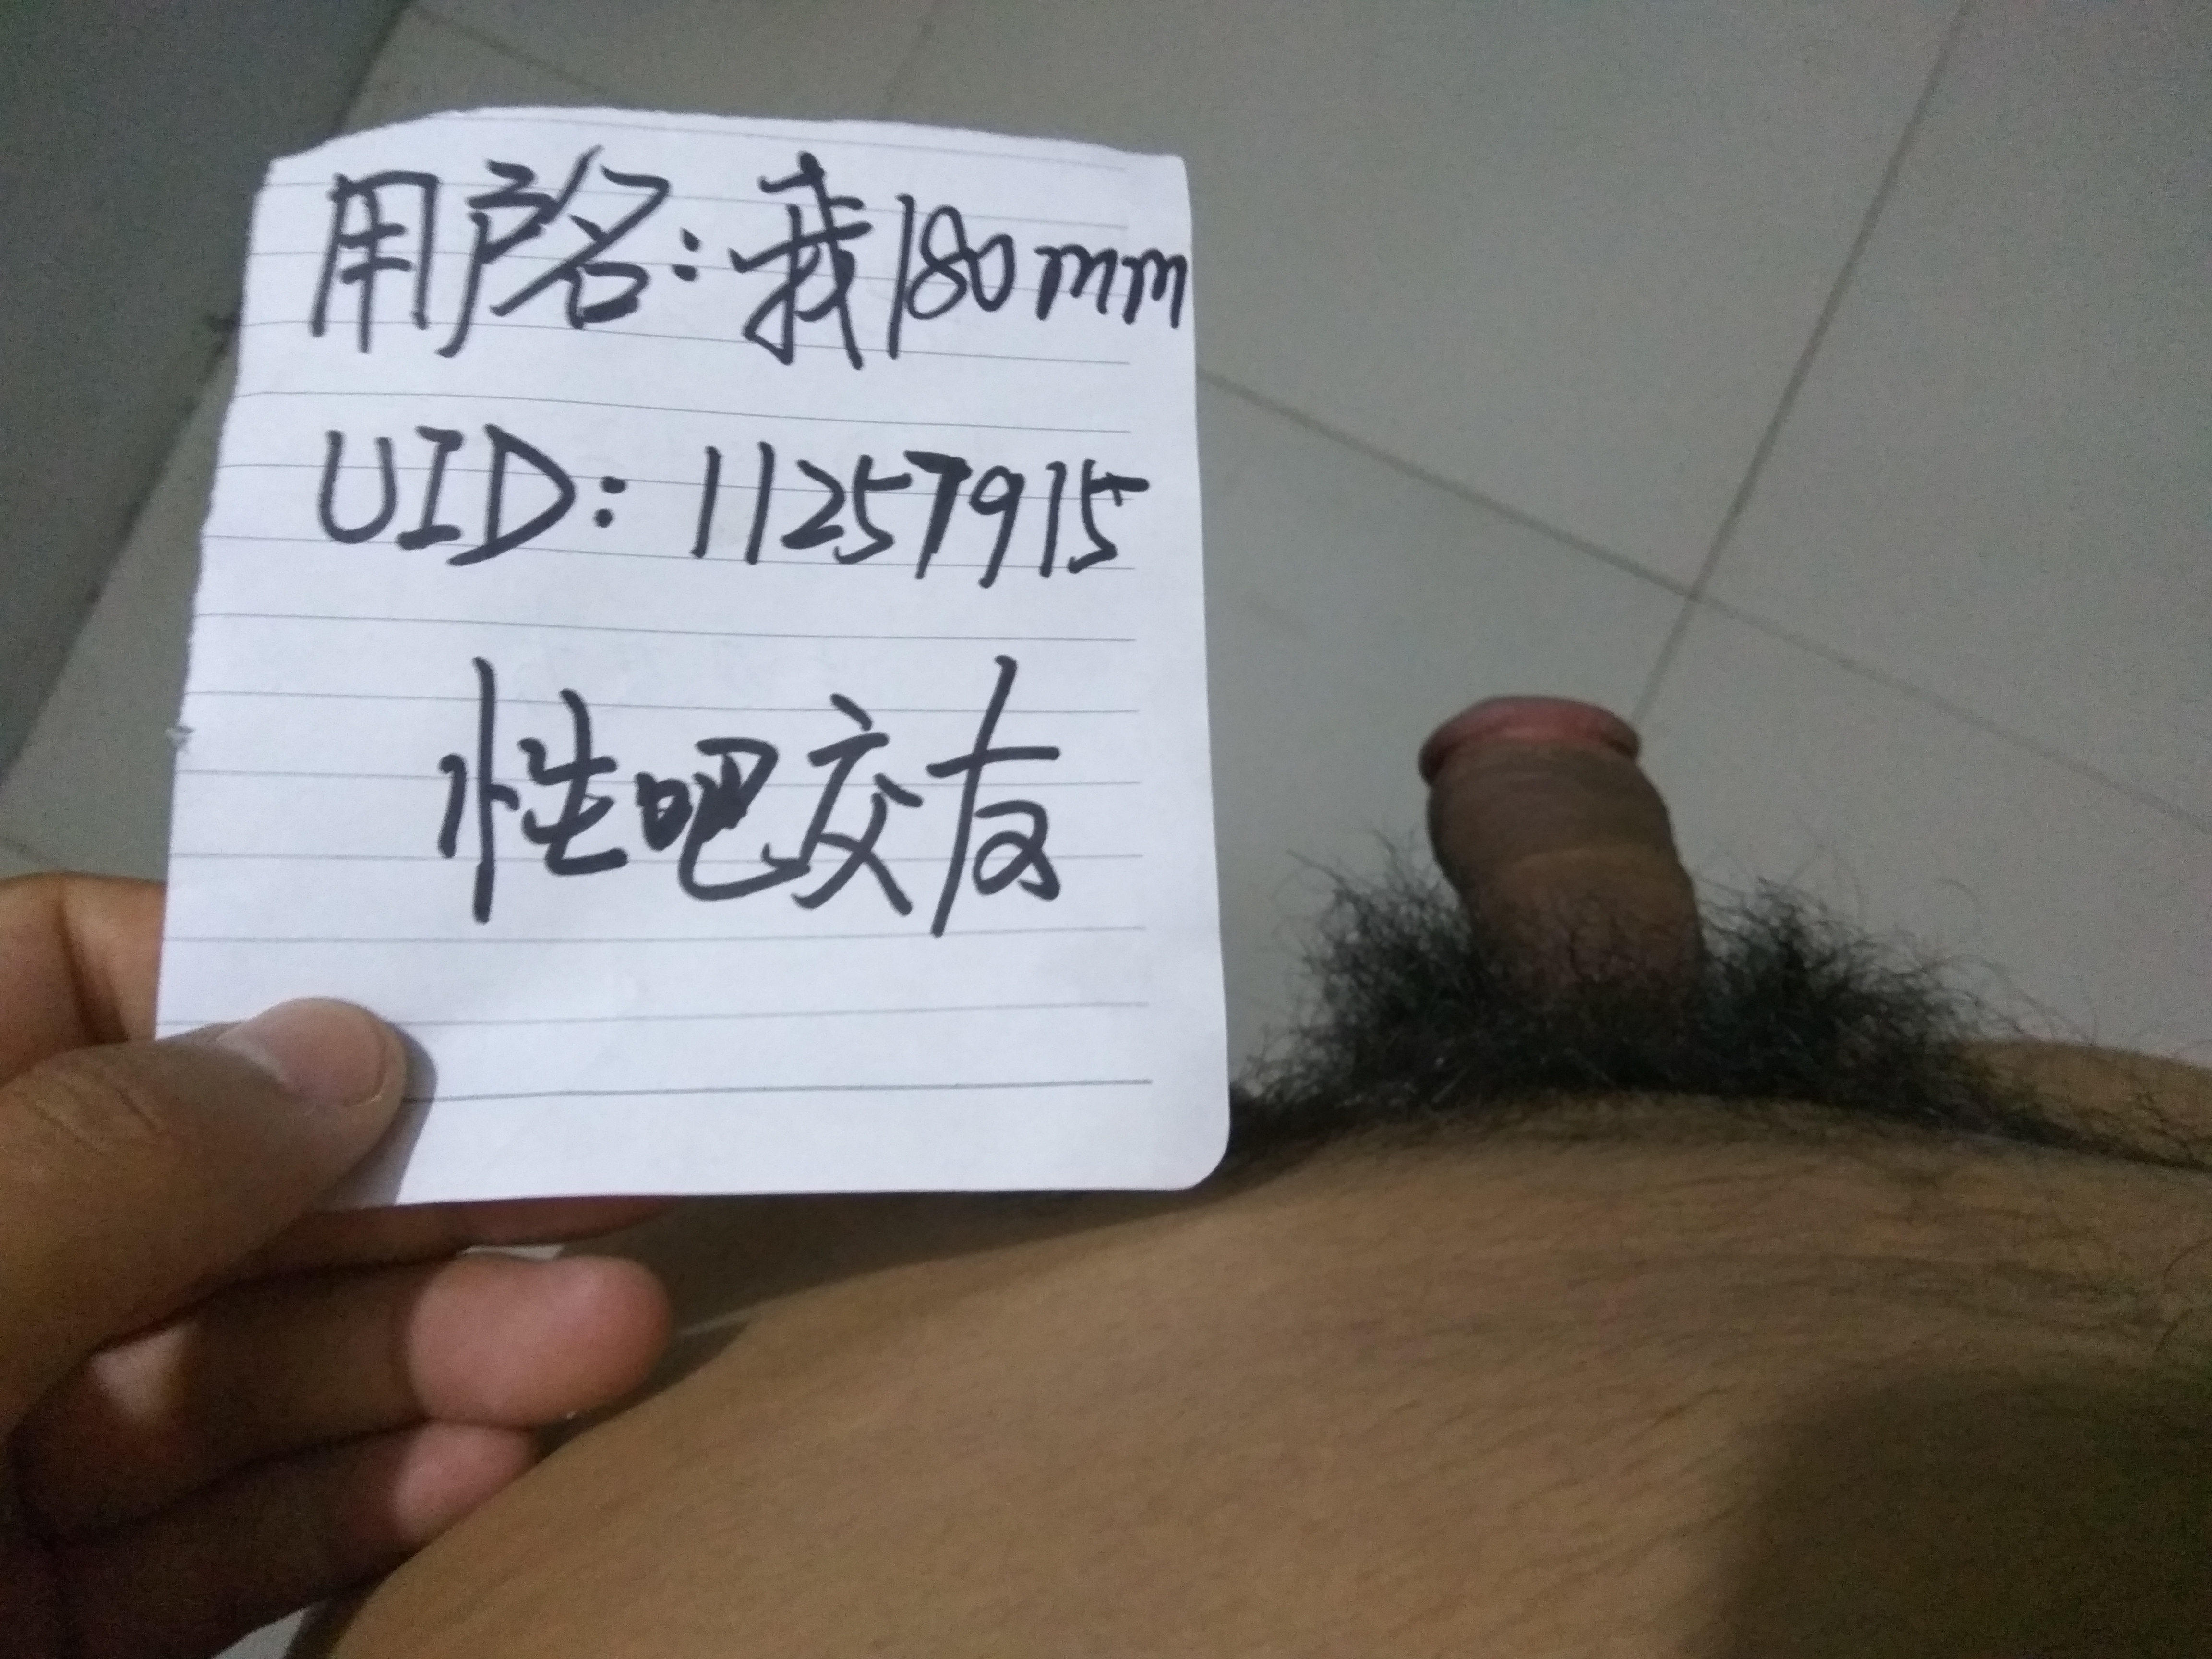 用户名：我180mm
UID：11257915
性吧交友